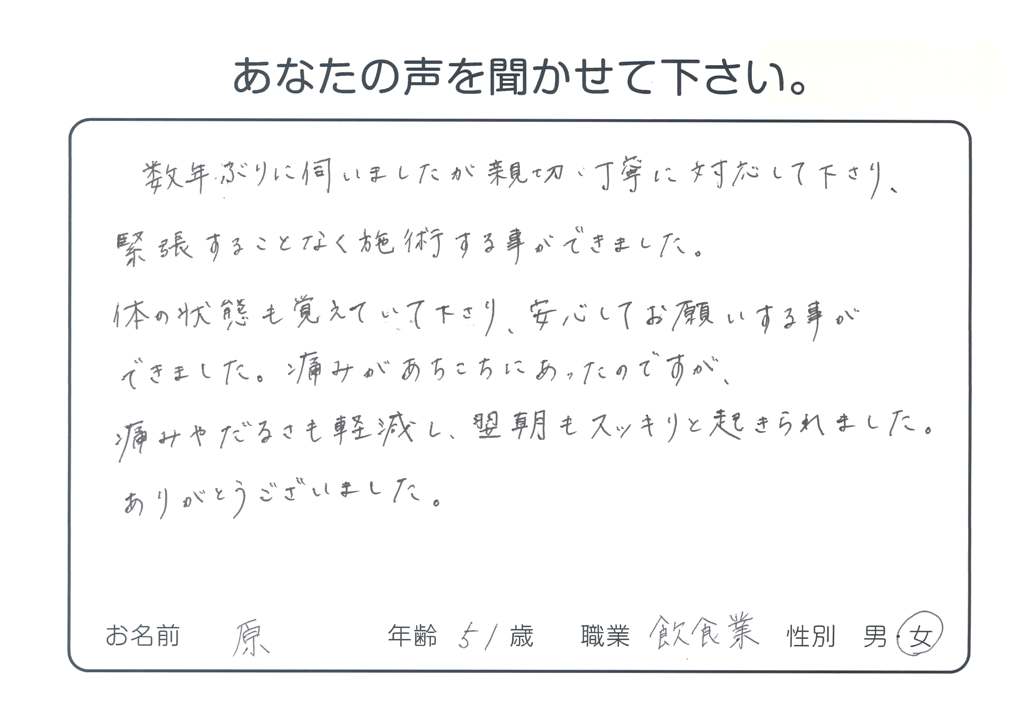 あなたの声を聞かせて下さい。
数年ぶりに伺いましたが親切・丁寧に対応して下さり、
緊張することなく施術する事ができました。
体の状態も覚えていて下さり、安心してお願いする事が
できました。痛みがあちこちにあったのですが、
痛みやだるさも軽減し、翌朝もスッキリと起きられました。
ありがとうございました。
お名前 原 年齢 51 歳 職業 飲食業 性別 男・女